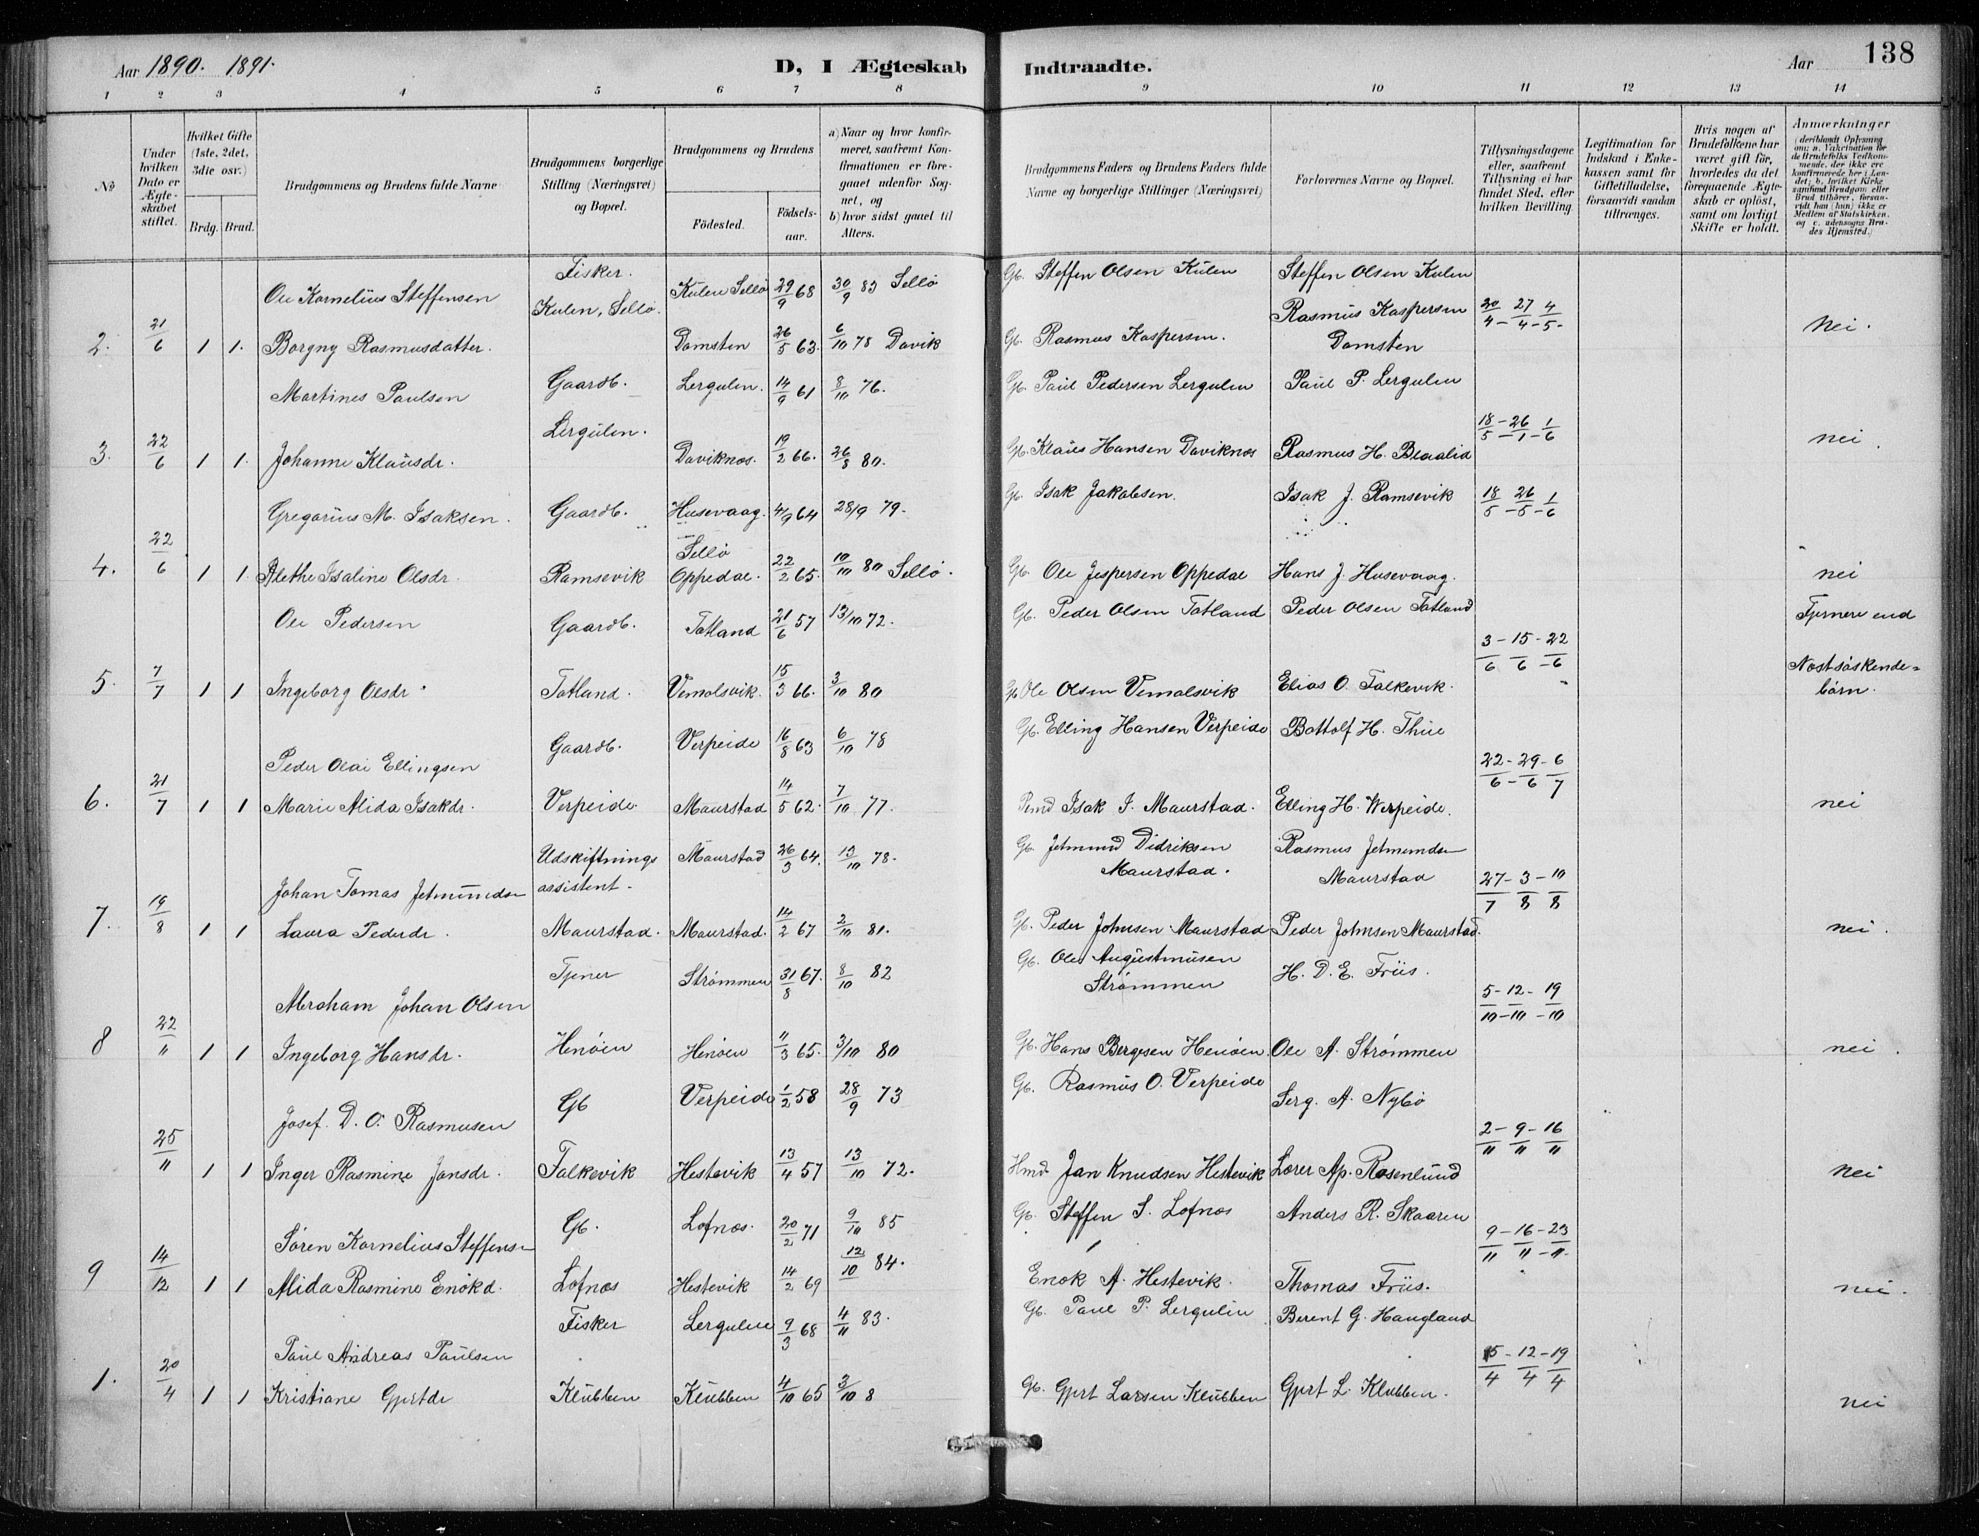 Aar 1890. 1891.
D, I Ægteskab Indtraadte.
Aar 138
1 2 3 4 5 6 7 8 9 10 11 12 13 14
No
Under hvilken Dato er Ægteskabet stiftet.
Hvilket Gifte (1ste, 2det, 3die osv.)
Brdg. Brud.
Brudgommens og Brudens fulde Navne
Brudgommens borgerlige Stilling (Næringsvei) og Bopæl.
Brudgommens og Brudens
Födested. Födselsaar.
a) Naar og hvor konfirmeret, saafremt Konfirmationen er foregaaet udenfor Sognet, og
b) hvor sidst gaaet til Alters.
Brudgommens Faders og Brudens Faders fulde Navne og borgerlige Stillinger (Næringsvei)
Forlovernes Navne og Bopæl.
Tillysningsdagene eller, saafremt Tillysning ei har fundet Sted, efter hvilken Bevilling
Legitimation for Indskud i Enkekassen samt for Giftetilladelse, forsaavidt saadan tiltrænges.
Hvis nogen af Brudefolkene har været gift för, hvorledes da det foregaaende Ægteskab er oplöst, samt om lovligt Skifte er holdt.
Anmærkninger
(deriblandt Oplysning om: a. Vakcination for de Brudefolks Vedkommende, der ikke ere konfirmerede her i Landet; b. hvilket Kirkesamfund Brudgom eller Brud tilhører, forsaavidt han (hun) ikke er Medlem af Statskirken, og c. udensogns Brudes Hjemsted.)
Ole Kornelius Steffensen Fisker. Kulen Sellö 29/9 68 30/9 83 Sellö Gb. Steffen Olsen Kulen Steffen Olsen Kulen
Kulen, Sellö.
2. 21/6 1 1. Borgny Rasmusdatter. Domsten 26/5 63. 6/10 78 Davik Gb. Rasmus Kaspersen. Rasmus Kaspersen Domsten 20/4 - 27/4 - 4/5 Nei.
Martines Paulsen Gaardb. Lergulen. 14/9 61 8/10 76. Gb. Paul Pedersen Lergulen Paul P. Lergulen
Lergulen.
3. 22/6 1 1. Johanne Klausdr. Daviknæs. 19/2 66. 26/8 80. Gb. Klaus Hansen Daviknæs Rasmus H. Blaalid 18/5 - 26/1 - 1/6 nei.
Gregorius M. Isaksen. Gaardb. Husevaag. 4/9 64 28/9 79. Gb. Isak Jakobsen. Isak J. Ramsevik 18/5 26/5 1/6
Sellö
4. 22/6 1 1. Alethe Isaline Olsdr. Ramsevik Oppedal. 22/2 65. 10/10 80 Sellö. Gb. Ole Jespersen Oppedal Hans J. Husevaag. nei
Ole Pedersen Gaardb. Totland 21/6 57 13/10 72. Gb. Peder Olsen Totland Peder Olsen Totland Fjernere end
5. 7/7 1 1 Ingeborg Olsdr. Totland. Vemolsvik. 15/3 66. 3/10 80 Gb Ole Olsen Vemolsvik Elias O. Falkevik. 3/6 - 15/6 - 22/6 Næstsöskende=börn.
Peder Olai Ellingsen Gaardb. Verpeide 16/8 63 6/10 78 Gb. Elling Hansen Verpeide Bottolf H. Thue
6. 21/7 1 1 Marie Alida Isakdr. Verpeide. Maurstad 14/5 62. 7/10 77. Isak I. Maurstad. Elling H. Werpeide. 22/6 - 29/6 - 6/7 nei
Johan Tomas Jetmundsen Udskiftnings assistent. Maurstad 26/3 64. 13/10 78. Gb. Jetmund Didriksen Maurstad. Rasmus Jetmundsen Maurstad
7. 19/8 1 1 Laura Pederdr. Maurstad. Maurstad. 14/2 67 2/10 81. Gb. Peder Johnsen Maurstad Peder Johnsen Maurstad. 27/7 - 3/8 - 10/8 nei.
Abraham Johan Olsen Tjener Strømmen 31/8 67. 8/10 82 Gb. Ole Augustinusen Strømmen H. D. E. Friis.
8 22/11 1 1 Ingeborg Hansdr. Henöen Henöen 11/3 65. 3/10 80 Gb. Hans Børgesen Henöen. Ole A. Strømmen 5/10 - 12/10 - 19/10 nei.
Josef. D. O. Rasmusen Gb Verpeide 1/2 58 28/9 73 Gb. Rasmus O. Verpeide Serg. A. Nybö
25/11 1 1 Inger Rasmine Jansdr. Falkevik Hestevik 13/4 57 13/10 72. Hmd. Jan Knudsen Hestevik Lærer Ap. Rosenlund 2/11 - 9/11 - 16/11 nei
Sören Kornelius Steffensen Gb. Lofnæs. 20/2 71 9/10 85 Gb. Steffen S. Lofnæs Anders R. Skaaren
9 14/12 1 1 Alida Rasmine Enokd. Lofnæs Hestevik 14/2 69 12/10 84. Enok A. Hestevik. Thomas Friis. 9/11 - 16/11 - 23/11 nei.
Paul Andreas Paulsen Fisker Lergulen 9/3 68 4/11 83. Gb. Paul P. Lergulen Berent G. Haugland
1. 20/4 1 1 Kristiane Gjertdr Klubben Klubben 4/10 65 3/10 8 Gb. Gjert Larsen Klubben Gjert L. Klubben. 5/4 - 12/4 - 19/4 nei